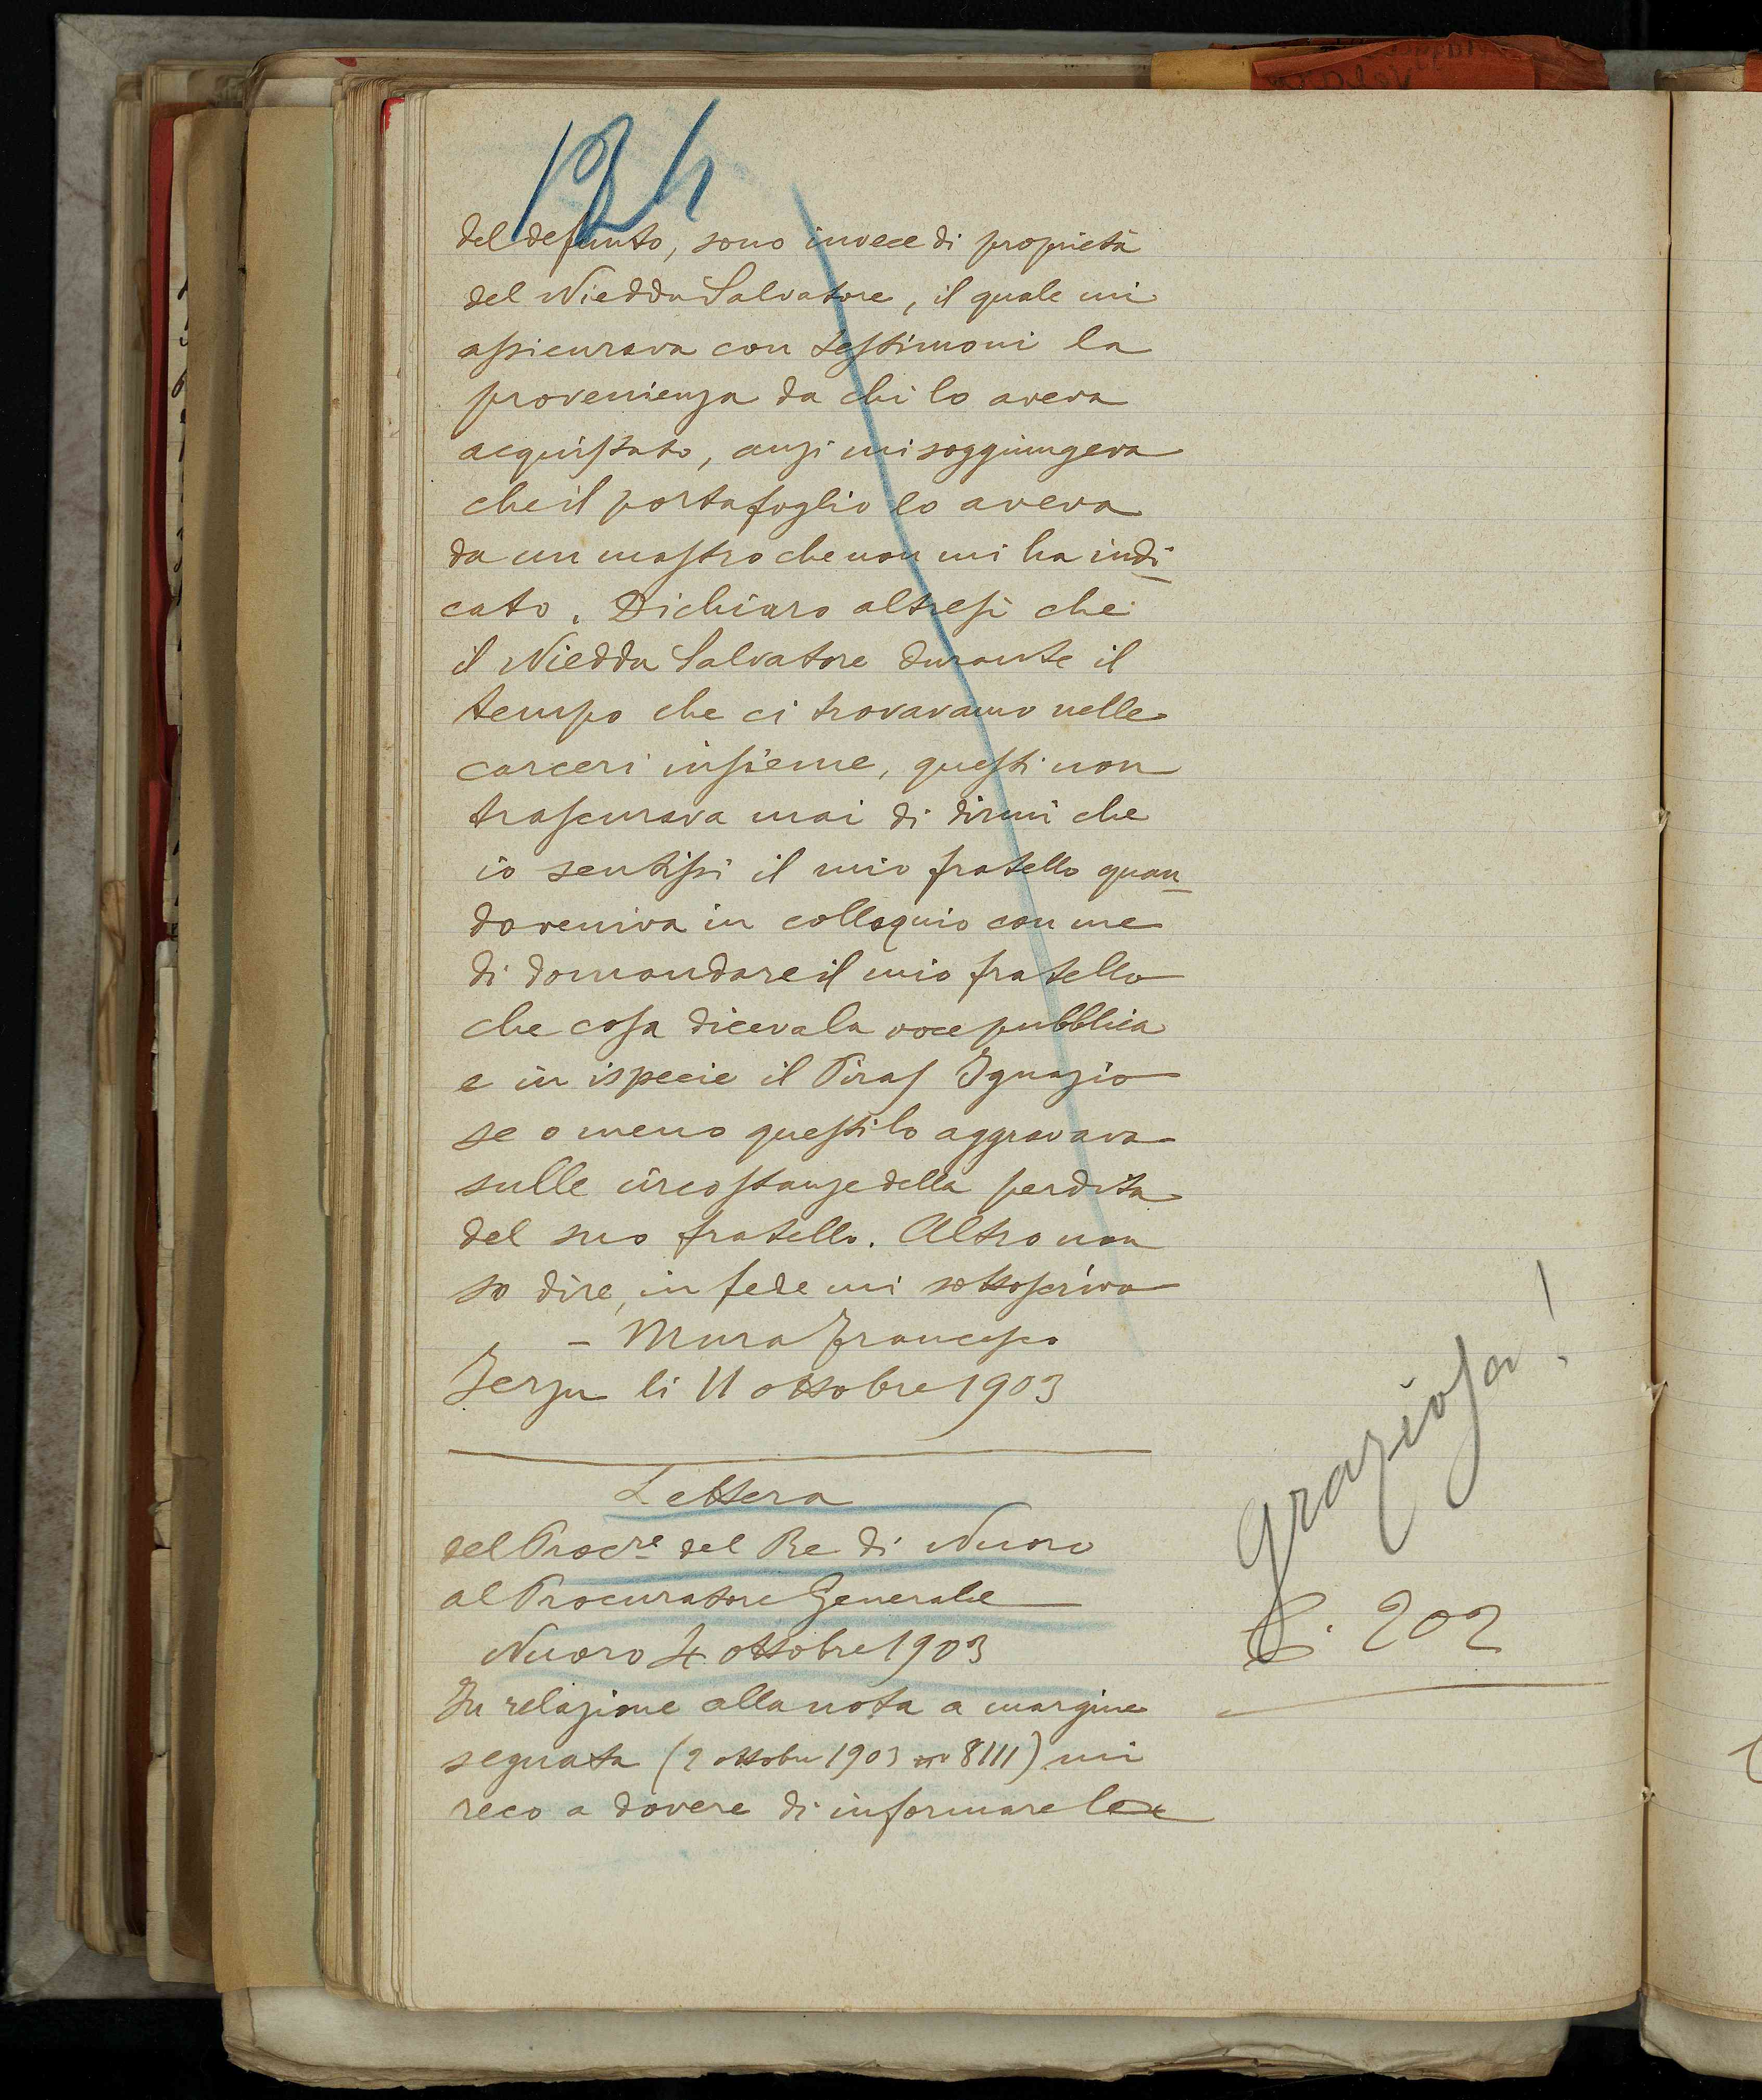 124
del defunto, sono invece di proprietà
del Nieddu Salvatore, il quale mi
assicurava con testimoni la
provenienza da chi lo aveva
acquistato, anzi mi soggiungeva
che il portafoglio lo aveva
da un mastro che non mi ha indi
cato. Dichiaro altresì che
il Niedda Salvatore durante il
tempo che ci trovavamo nelle
carceri insieme, questi non
trascurava mai di dirmi che
io sentissi il mio fratello quan
do veniva in colloquio con me
di domandare il mio fratello
che cosa diceva la voce pubblica
e in ispecie il Piras Ignazio
se o meno questi lo aggravava
sulle circostanze della perdita
del suo fratello. Altro non
so dire, in fede mi sottoscrivo
- Mura Francesco
Jerzu li 11 ottobre 1903
Lettera
del Procre del Re di Nuoro
al Procuratore Generale
Nuoro 4 ottobre 1903
In relazione alla nota a margine
segnata (2 ottobre 1903 no 8111) mi
reco a dovere di informare la
graziosa!
C. 202